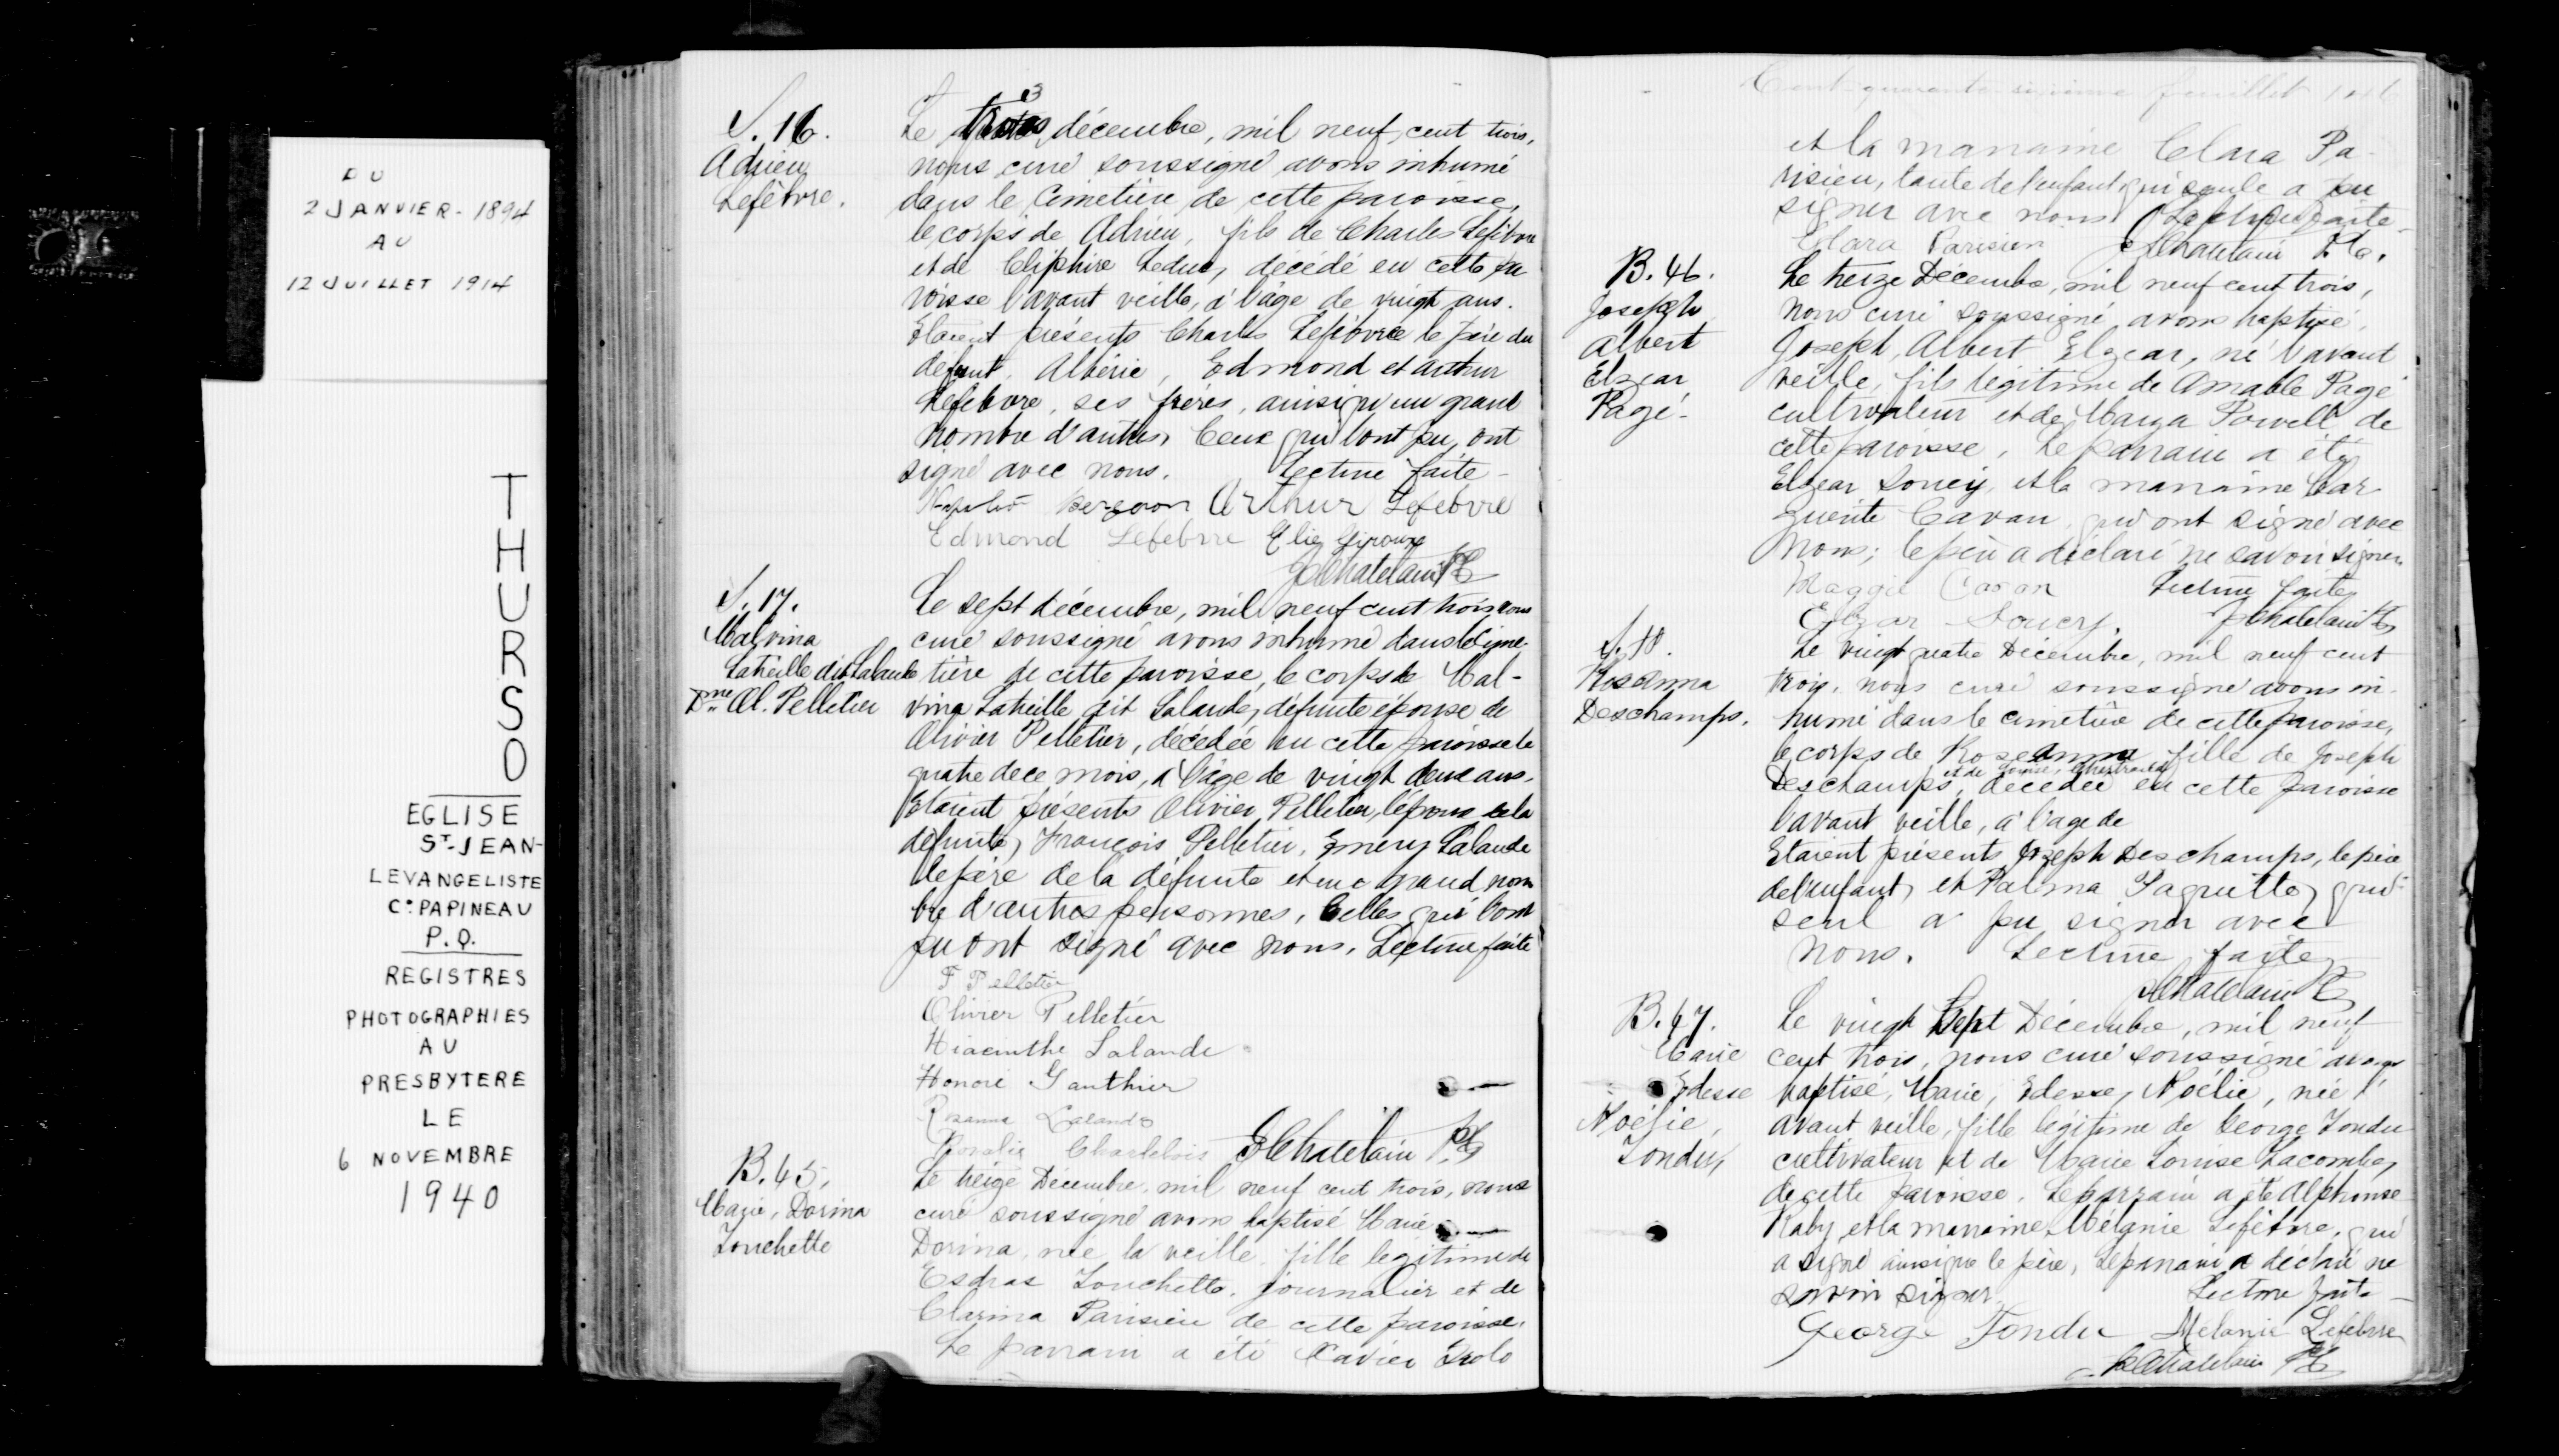 DU
2 JANVIER - 1894
AU
12 JUILLET 1914
THURSO
EGLISE
ST-JEAN-
LEVANGELISTE
Co PAPINEAU
P.Q.
REGISTRES
PHOTOGRAPHIES
AU
PRESBYTERE
LE
6 NOVEMBRE
1940
S. 16.
Adrien
Lefebvre.
3
Le trois décembre, mil neuf cent trois,
nous curé soussigné avons inhumé
dans le Cimetière de cette paroisse,
le corps de Adrien, fils de Charles Lefebvre
et de Leduc, décédé en cette pa
roisse l'avant veille, à l'âge de vingt ans.
Etaient présents Charles Lefebvre le père du
défunt, Albéric, Edmond et Arthur
Lefebvre, ses frères, ainsi qu'un grand
nombre d'autres. Ceux qui l'ont pu, ont
signé avec nous. Lecture faite -
Napoléon Bergeron Arthur Lefebvre
Edmond Lefebvre Elie Giroux
Chatelain Ptre
S. 17.
Malvina
Latreille dit Lalande
Dme Ol. Pelletier
Le sept décembre, mil neuf cent trois, nous
curé soussigné avons inhumé dans le cime-
tière de cette paroisse, le corps de Mal-
vina Latreille dit Lalande, défunte épouse de
Olivier Pelletier, décédée en cette paroisse le
quatre de ce mois, à l'âge de vingt deux ans.
Etaient présents Olivier Pelletier, l'époux de la
défunte, François Pelletier, Emery Lalande
le père de la défunte et un grand nom
bre d'autres personnes. Celles qui l'ont
pu ont signé avec nous. Lecture faite
F Pelletier
Olivier Pelletier
Hiacinthe Lalande
Honoré Gauthier
Rosanna Lalande
Rosalie Charlebois Chatelain Ptre
B. 45.
Marie, Dorina
Touchette
Le treize Décembre, mil neuf cent trois, nous
curé soussigné avons baptisé Marie
Dorina, née la veille, fille légitime de
Esdras Touchette, journalier et de
Clarina Parisien de cette paroisse.
Le parrain a été Xavier Drolo
Cent-quarante-sixième feuillet 146
et la marraine Clara Pa-
risien, tante de l'enfant qui seule a pu
signer avec nous. Lecture faite -
Clara Parisien Chatelain Ptre.
B. 46.
Joseph
Albert
Elzear
Pagé -
Le treize Décembre, mil neuf cent trois,
nous curé soussigné avons baptisé,
Joseph, Albert Elzear, né l'avant
veille, fils légitime de Amable Pagé
cultivateur et de Powell de
cette paroisse. Le parrain a été
Elzear Soucy, et la marraine Mar
guerite Cavan, qui ont signé avec
nous; le père a déclaré ne savoir signer
Maggie Lecture faite
Elzear Soucy. Chatelain Ptre
S. 18.
Roseanna
Deschamps.
Le vingt quatre Décembre, mil neuf cent
trois, nous curé soussigné avons in-
humé dans le cimetière de cette paroisse,
le corps de Roseanna fille de Joseph
et de Louise
Deschamps, décédée en cette paroisse
l'avant veille, à l'age de
Etaient présents Joseph Deschamps, le père
de l'enfant, et Palma Paquette, qui
seul a pu signer avec
nous. Lecture faite
Chatelain Ptre
B. 47.
Marie
Edesse
Noélie,
Tondu,
Le vingt sept Décembre, mil neuf
cent trois, nous curé soussigné avons
baptisé, Marie, Edesse, Noélie, née l'
avant veille, fille légitime de George Tondu
cultivateur et de Marie Louise Lacombe,
de cette paroisse. Le parrain a été Alphonse
Raby et la marraine Mélanie Lefebvre, qui
a signé ainsi que le père, Le parrain a déclaré ne
savoir signer. Lecture faite -
George Tondu Mélanie Lefebvre
Chatelain Ptre